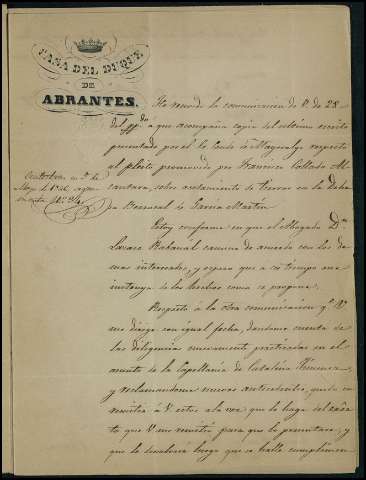 CASA DEL DUQUE
DE
ABRANTES.
He recivido la comunicacion de V. de 28
del pp.do á que acompaña copia del último escrito
presentado por el Conde de Mayoralgo respecto
al pleito promovido por Francisco Collado Al
cantara, sobre acotamiento de tierras en la Dehe
sa Berrocal de Garcia Martin
Estoy conforme en que el Abogado Dn.
Lazaro Rabanál camine de acuerdo con los de
mas interesados, y espero que á su tiempo me
instruya de los hechos como se propone.
Respecto á la otra comunicacion q.e V.
me dirige con igual fecha, dandome cuenta de
las diligencias nuevamente practicadas en el
asunto de la Capellania de Catalina
y reclamandome nuevos antecedentes, quedo en
remitir á V. estos á la vez que lo haga del
to que V. me remitió para que lo presentara, y
que lo devolveré luego que se halle cumplimen
Contestada en 7 de
Mayo de 1856, segun
minuta